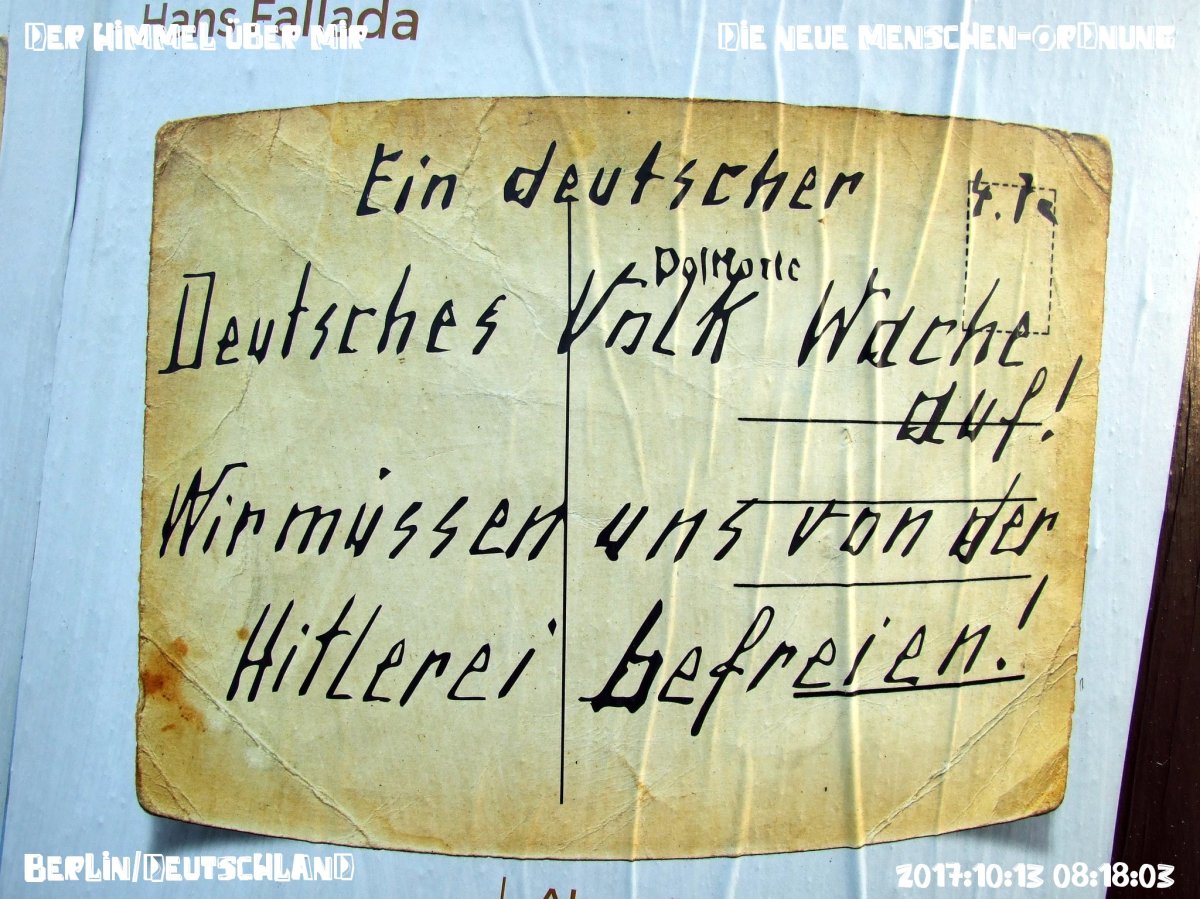 Hans Fallada
Der Himmel über mir
Die neue Menschen-Ordnung
Ein deutscher
4.7
Deutsches Volk Wache
auf!
Wir müssen uns von der
Hitlerei befreien!
Berlin/Deutschland
2017:10:13 08:18:03